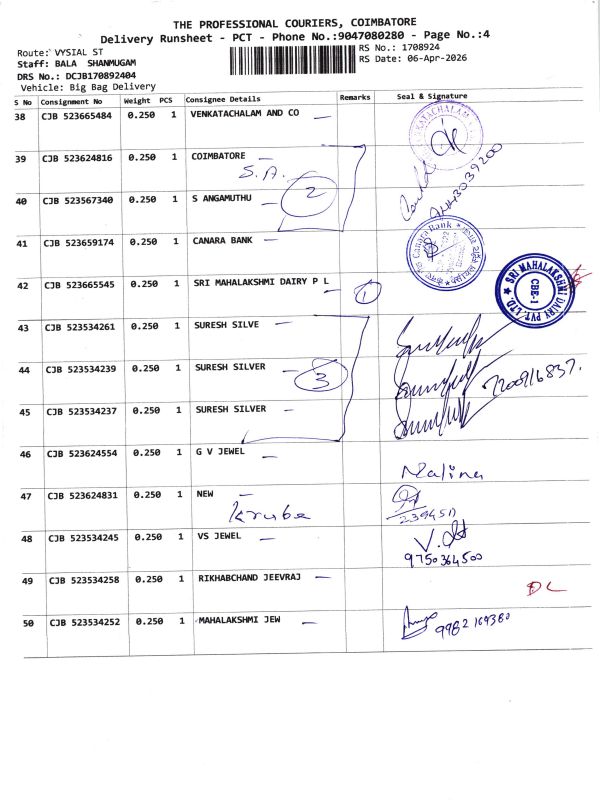 THE PROFESSIONAL COURIERS, COIMBATORE
Delivery Runsheet - PCT - Phone No.:9047080280 - Page No.:4
Route: VYSIAL ST
Staff: BALA SHANMUGAM
DRS No.: DCJB170892404
Vehicle: Big Bag Delivery
RS No.: 1708924
RS Date: 06-Apr-2026
S No Consignment No Weight PCS Consignee Details Remarks Seal & Signature
38 CJB 523665484 0.250 1 VENKATACHALAM AND CO
39 CJB 523624816 0.250 1 COIMBATORE
S.A.
2
40 CJB 523567340 0.250 1 S ANGAMUTHU
41 CJB 523659174 0.250 1 CANARA BANK
Canara Bank
42 CJB 523665545 0.250 1 SRI MAHALAKSHMI DAIRY P L
1
SRI MAHALAKSHMI DAIRY PVT. LTD.
CBE-1
43 CJB 523534261 0.250 1 SURESH SILVE
44 CJB 523534239 0.250 1 SURESH SILVER
3
45 CJB 523534237 0.250 1 SURESH SILVER
46 CJB 523624554 0.250 1 G V JEWEL
Nalina
47 CJB 523624831 0.250 1 NEW
Kruba
48 CJB 523534245 0.250 1 VS JEWEL
9750364500
49 CJB 523534258 0.250 1 RIKHABCHAND JEEVRAJ
DL
50 CJB 523534252 0.250 1 MAHALAKSHMI JEW
9982169380